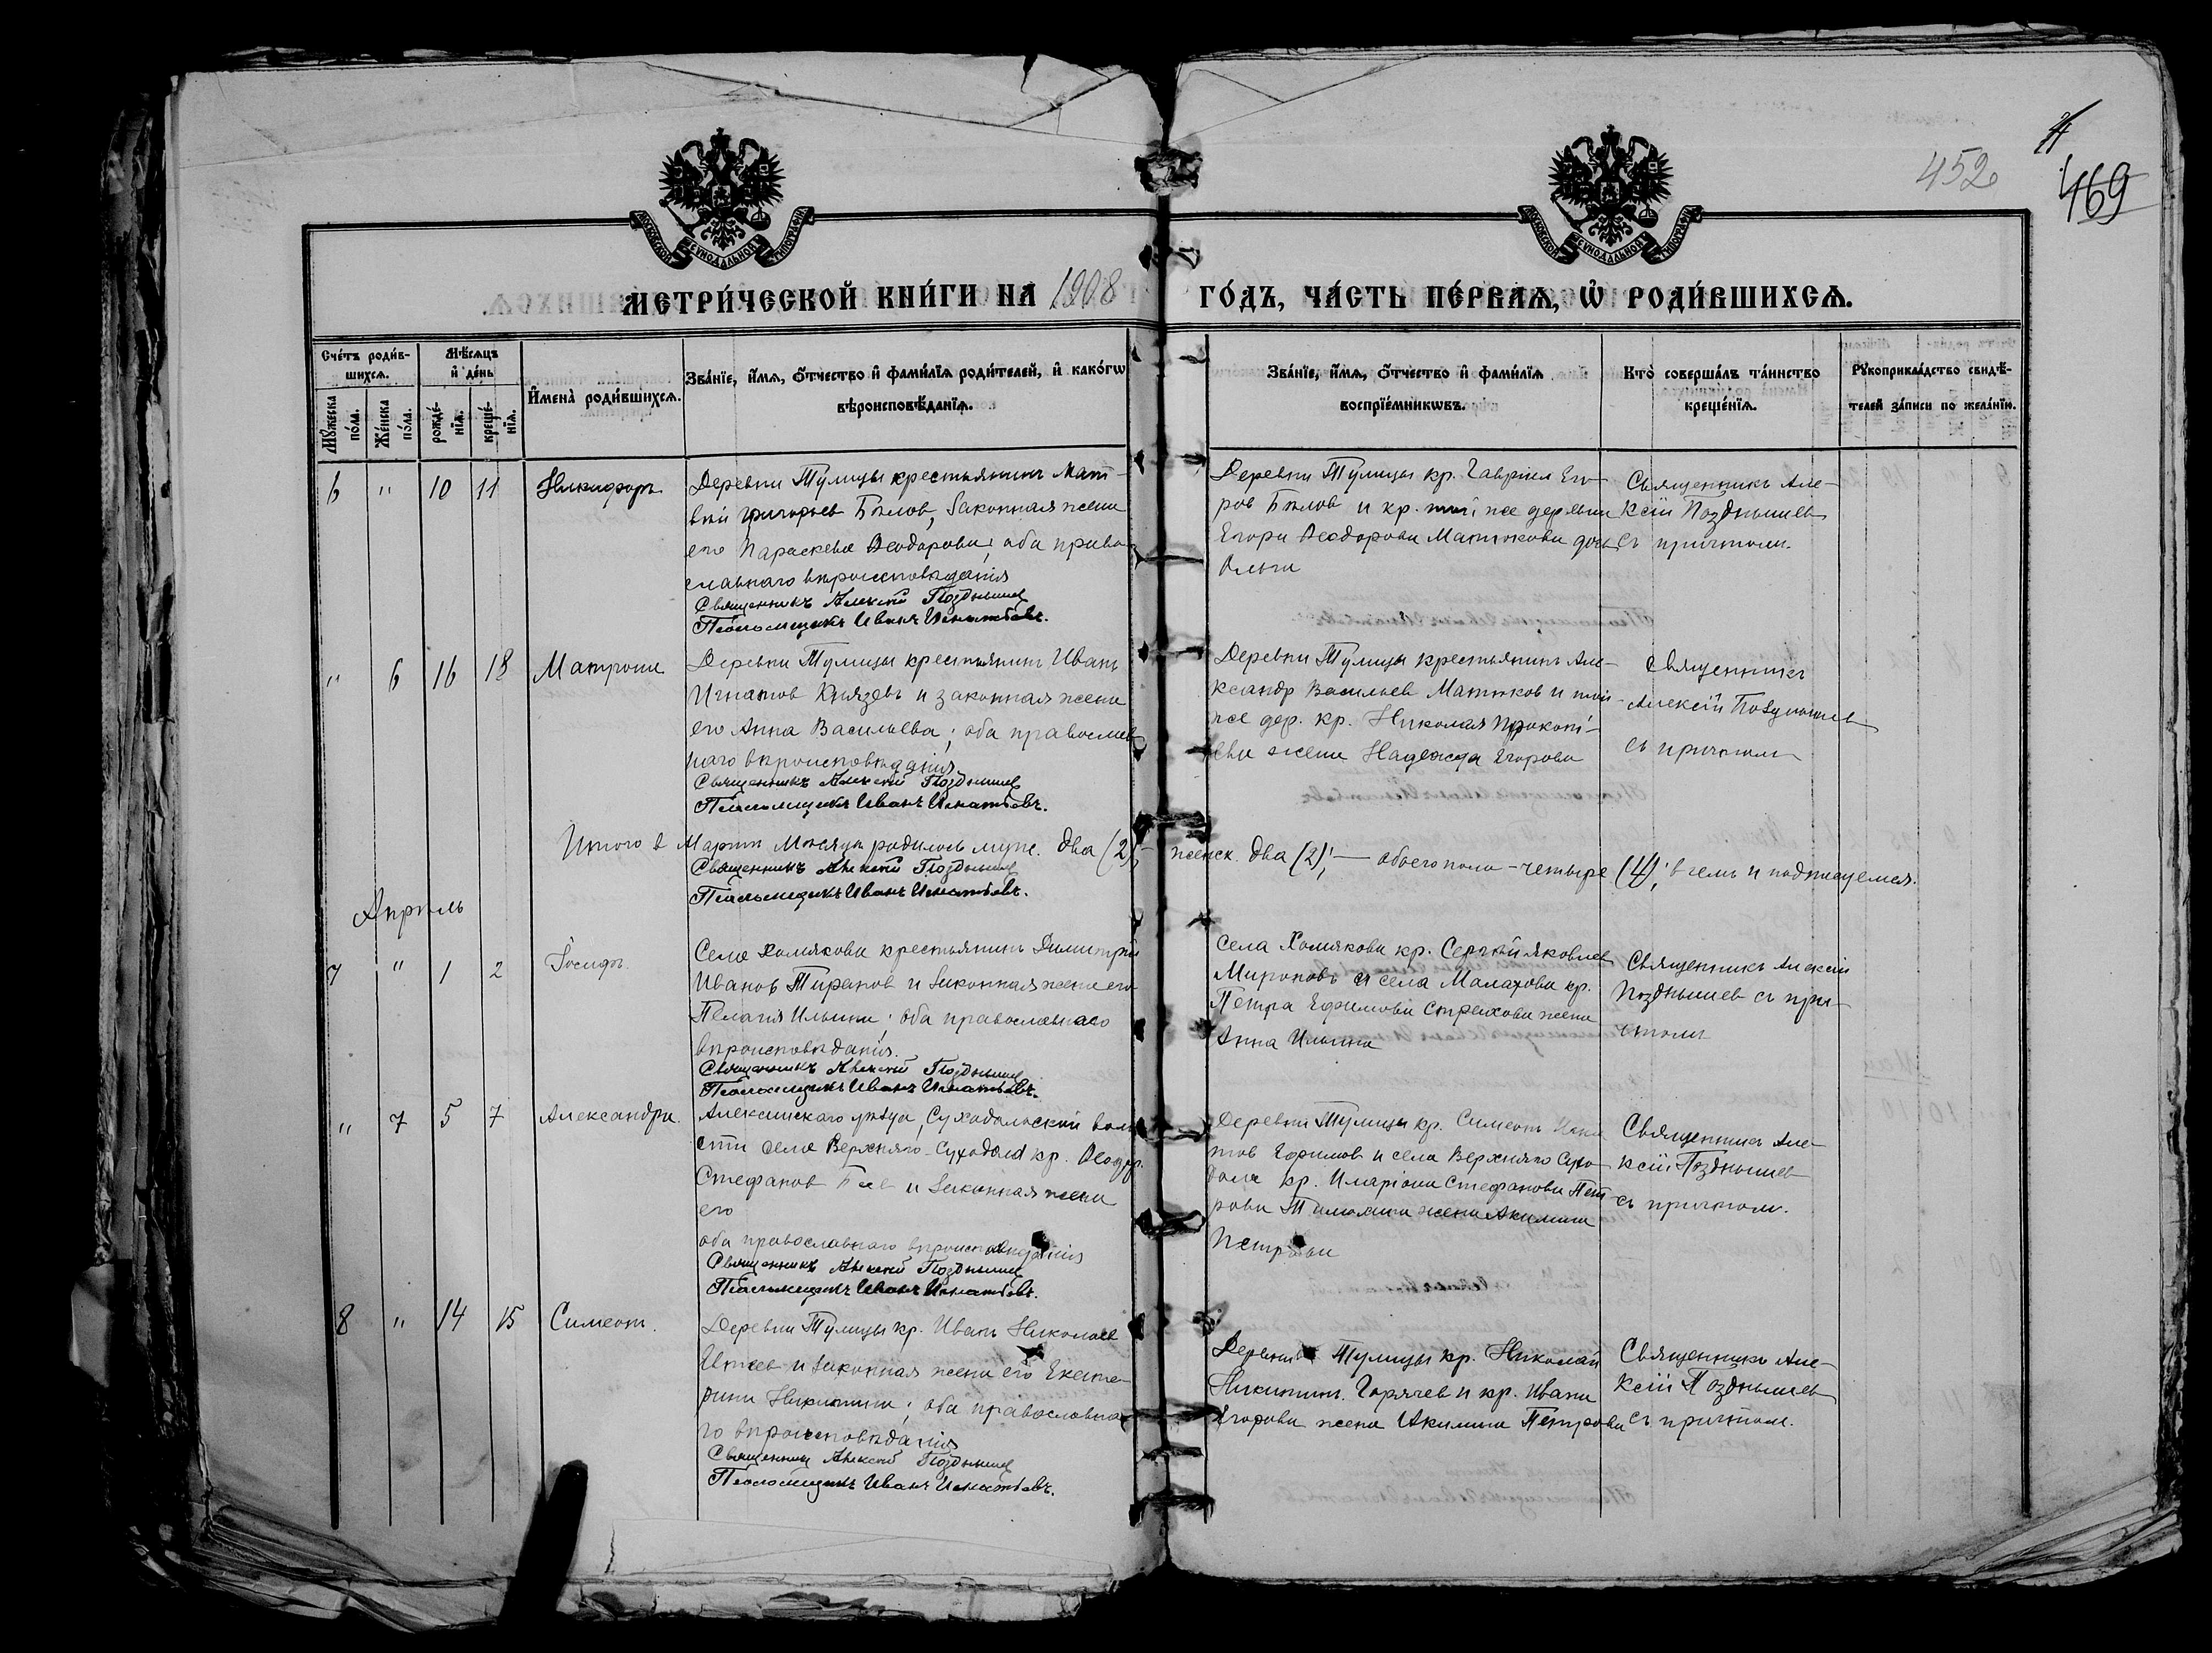 452
469
МЕТРИ́ЧЕСКОЙ КНИ́ГИ НА 1908 ГО́ДЪ, ЧА́СТЬ ПЕ́РВАѦ, Ѡ҆ РОДИ́ВШИХСѦ.
Сче́тъ роди́в-
шихсѧ.
Мѣ́сѧцъ
и҆ де́нь
Мꙋ́жеска
по́ла.
Же́нска
по́ла.
рожде́-
нїѧ.
креще́-
нїѧ.
И҆мена̀ роди́вшихсѧ.
Зва́нїе, и҆́мѧ, ѻ҆́тчество и҆ фами́лїѧ роди́телей, и҆ како́гѡ
вѣроисповѣ́данїѧ.
Зва́нїе, и҆́мѧ, ѻ҆́тчество и҆ фами́лїѧ
воспрїе́мникѡвъ.
Кто̀ соверша́лъ та́инство
креще́нїѧ.
Рꙋкоприкла́дство свидѣ́-
телей за́писи по жела́нїю.
6 " 10 11 Никифоръ
Деревни Тулицы крестьянинъ Мат-
вѣй Григорьев Бѣлов, законная жена
его Параскева Ѳеодорова; оба право-
славнаго вѣроисповѣданія
Священникъ Алексій Позднышев
Псаломщикъ Иванъ Игнатьевъ.
Деревни Тулицы кр. Гавриил Его-
ров Бѣлов и кр. той же деревни
Егора Ѳеодорова Матюкова дочь
Ольга
Священникъ Але-
ксій Позднышев
съ причтом.
" 6 16 18 Матрона
Деревни Тулицы крестьянинъ Иванъ
Игнатов Князевъ и законная жена
его Анна Васильева; оба православ
наго вѣроисповѣданія
Священникъ Алексій Позднышев
Псаломщикъ Иванъ Игнатьевъ.
Деревни Тулицы крестьянинъ Але-
ксандр Васильев Матюков и той-
же дер. кр. Николая Прокопі-
ева жена Надежда Егорова
Священникъ
Алексій Позднышев
съ причтом
Итого в Мартѣ Мѣсяцѣ родилось муж. два (2); — женск. два (2); — обоего пола — четыре (4); в чем и подписуемся.
Священникъ Алексій Позднышев
Псаломщикъ Иванъ Игнатьевъ.
Апрѣль
7 " 1 2 Іосифъ
Села Хомякова крестьянинъ Димитрій
Иванов Тиранов и законная жена его
Пелагія Ильина; оба православнаго
вѣроисповѣданія.
Священникъ Алексій Позднышев
Псаломщикъ Иванъ Игнатьевъ.
Села Хомякова кр. Сергѣй Яковлев
Мироновъ и села Малахова кр.
Петра Ефимова Страхова жена
Анна Ильина
Священникъ Алексій
Позднышев съ при-
чтом
" 7 5 7 Александра.
Алексинскаго уѣзда, Суходольской вол
сти села Верхняго-Суходола кр. Ѳеодор
Стефанов и законная жена
его
оба православнаго вѣроисповѣданія
Священникъ Алексій Позднышев
Псаломщикъ Иванъ Игнатьевъ.
Деревни Тулицы кр. Симеонъ Игна
тов Ефимов и села Верхняго Сухо-
дола кр. Иларіона Стефанова Пет
рова жена Акилина
Петрова
Священникъ Але-
ксій Позднышев
съ причтом.
8 " 14 15 Симеон.
Деревни Тулицы кр. Иванъ Николаев
и законная жена его Екате-
рина Никитина; оба православна
го вѣроисповѣданія
Священник Алексій Позднышев
Псаломщикъ Иванъ Игнатьевъ.
Деревни Тулицы кр. Николай
Никитин. Горячев и кр. Ивана
Егорова жена Акилина Петрова
Священникъ Але-
ксій Позднышев
съ причтом.